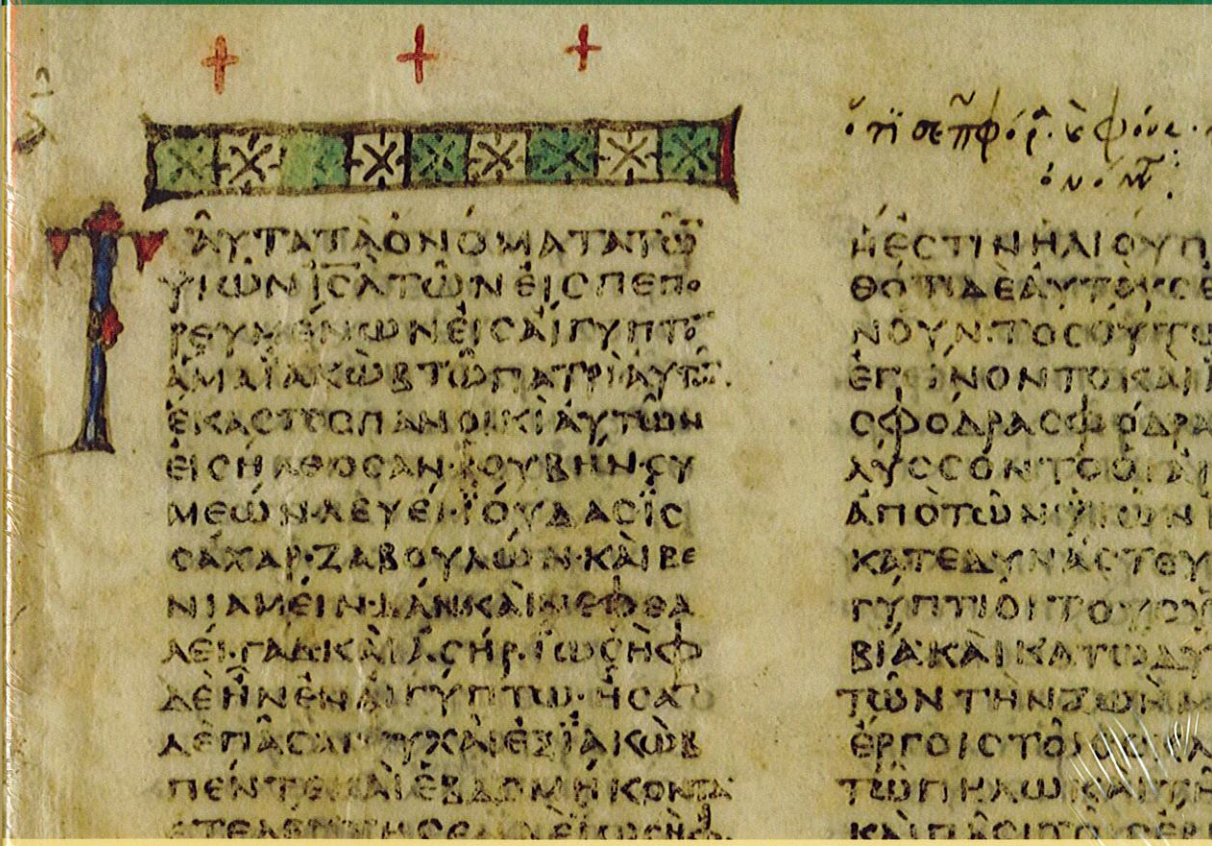 ΤΑΥΤΑΤΑΟΝΟΜΑΤΑΤΩ
ΥΙΩΝΙΣ̅Λ̅ΤΩΝΕΙΣΠΕΠΟ
ΡΕΥΜΕΝΩΝΕΙΣΑΙΓΥΠΤΟ
ΑΜΑΪΑΚΩΒΤΩΠΑΤΡΙΑΥΤΩ
ΕΚΑΣΤΟΣΠΑΝΟΙΚΙΑΥΤΩΝ
ΕΙΣΗΛΘΟΣΑΝ·ΡΟΥΒΗΝ·ΣΥ
ΜΕΩΝ·ΛΕΥΕΙ·ΪΟΥΔΑΣΪΣ
ΣΑΧΑΡ·ΖΑΒΟΥΛΩΝ·ΚΑΙΒΕ
ΝΙΑΜΕΙΝ·ΔΑΝΚΑΙΝΕΦΘΑ
ΛΕΙ·ΓΑΔΚΑΙΑΣΗΡ·ΪΩΣΗΦ
ΔΕΗΝΕΝΑΙΓΥΠΤΩ·ΗΣΑ
ΔΕΠΑΣΑΙΨΥΧΑΙΕΞΪΑΚΩΒ
ΠΕΝΤΕΚΑΙΕΒΔΟΜΗΚΟΝΤΑ
ΕΤΕΛΕΥΤΗΣΕΔΕΪΩΣΗΦ
ΗΕΣΤΙΝΗΛΙΟΥΠ
ΘΟΤΙΔΕΑΥΤΟΥΣΕ
ΝΟΥΝΤΟΣΟΥΤΩ
ΕΓΙΝΟΝΤΟΚΑΙΪ
ΣΦΟΔΡΑΣΦΟΔΡΑ
ΛΥΣΣΟΝΤΟΟΙΑΙ
ΑΠΟΤΩΝΥΙΩΝΙ
ΚΑΤΕΔΥΝΑΣΤΕΥ
ΓΥΠΤΙΟΙΤΟΥΣΥΪ
ΒΙΑΚΑΙΚΑΤΩΔΥ
ΤΩΝΤΗΝΖΩΗΝ
ΕΡΓΟΙΣΤΟΙΣΣΚΛ
ΤΩΠΗΛΩΚΑΙΤΗ
ΚΑΙΠΑΣΙΤΟΙΣΕΡ